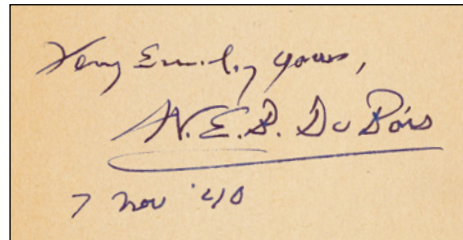 Very Sincerely yours,
W. E. B. Du Bois
7 Nov '40